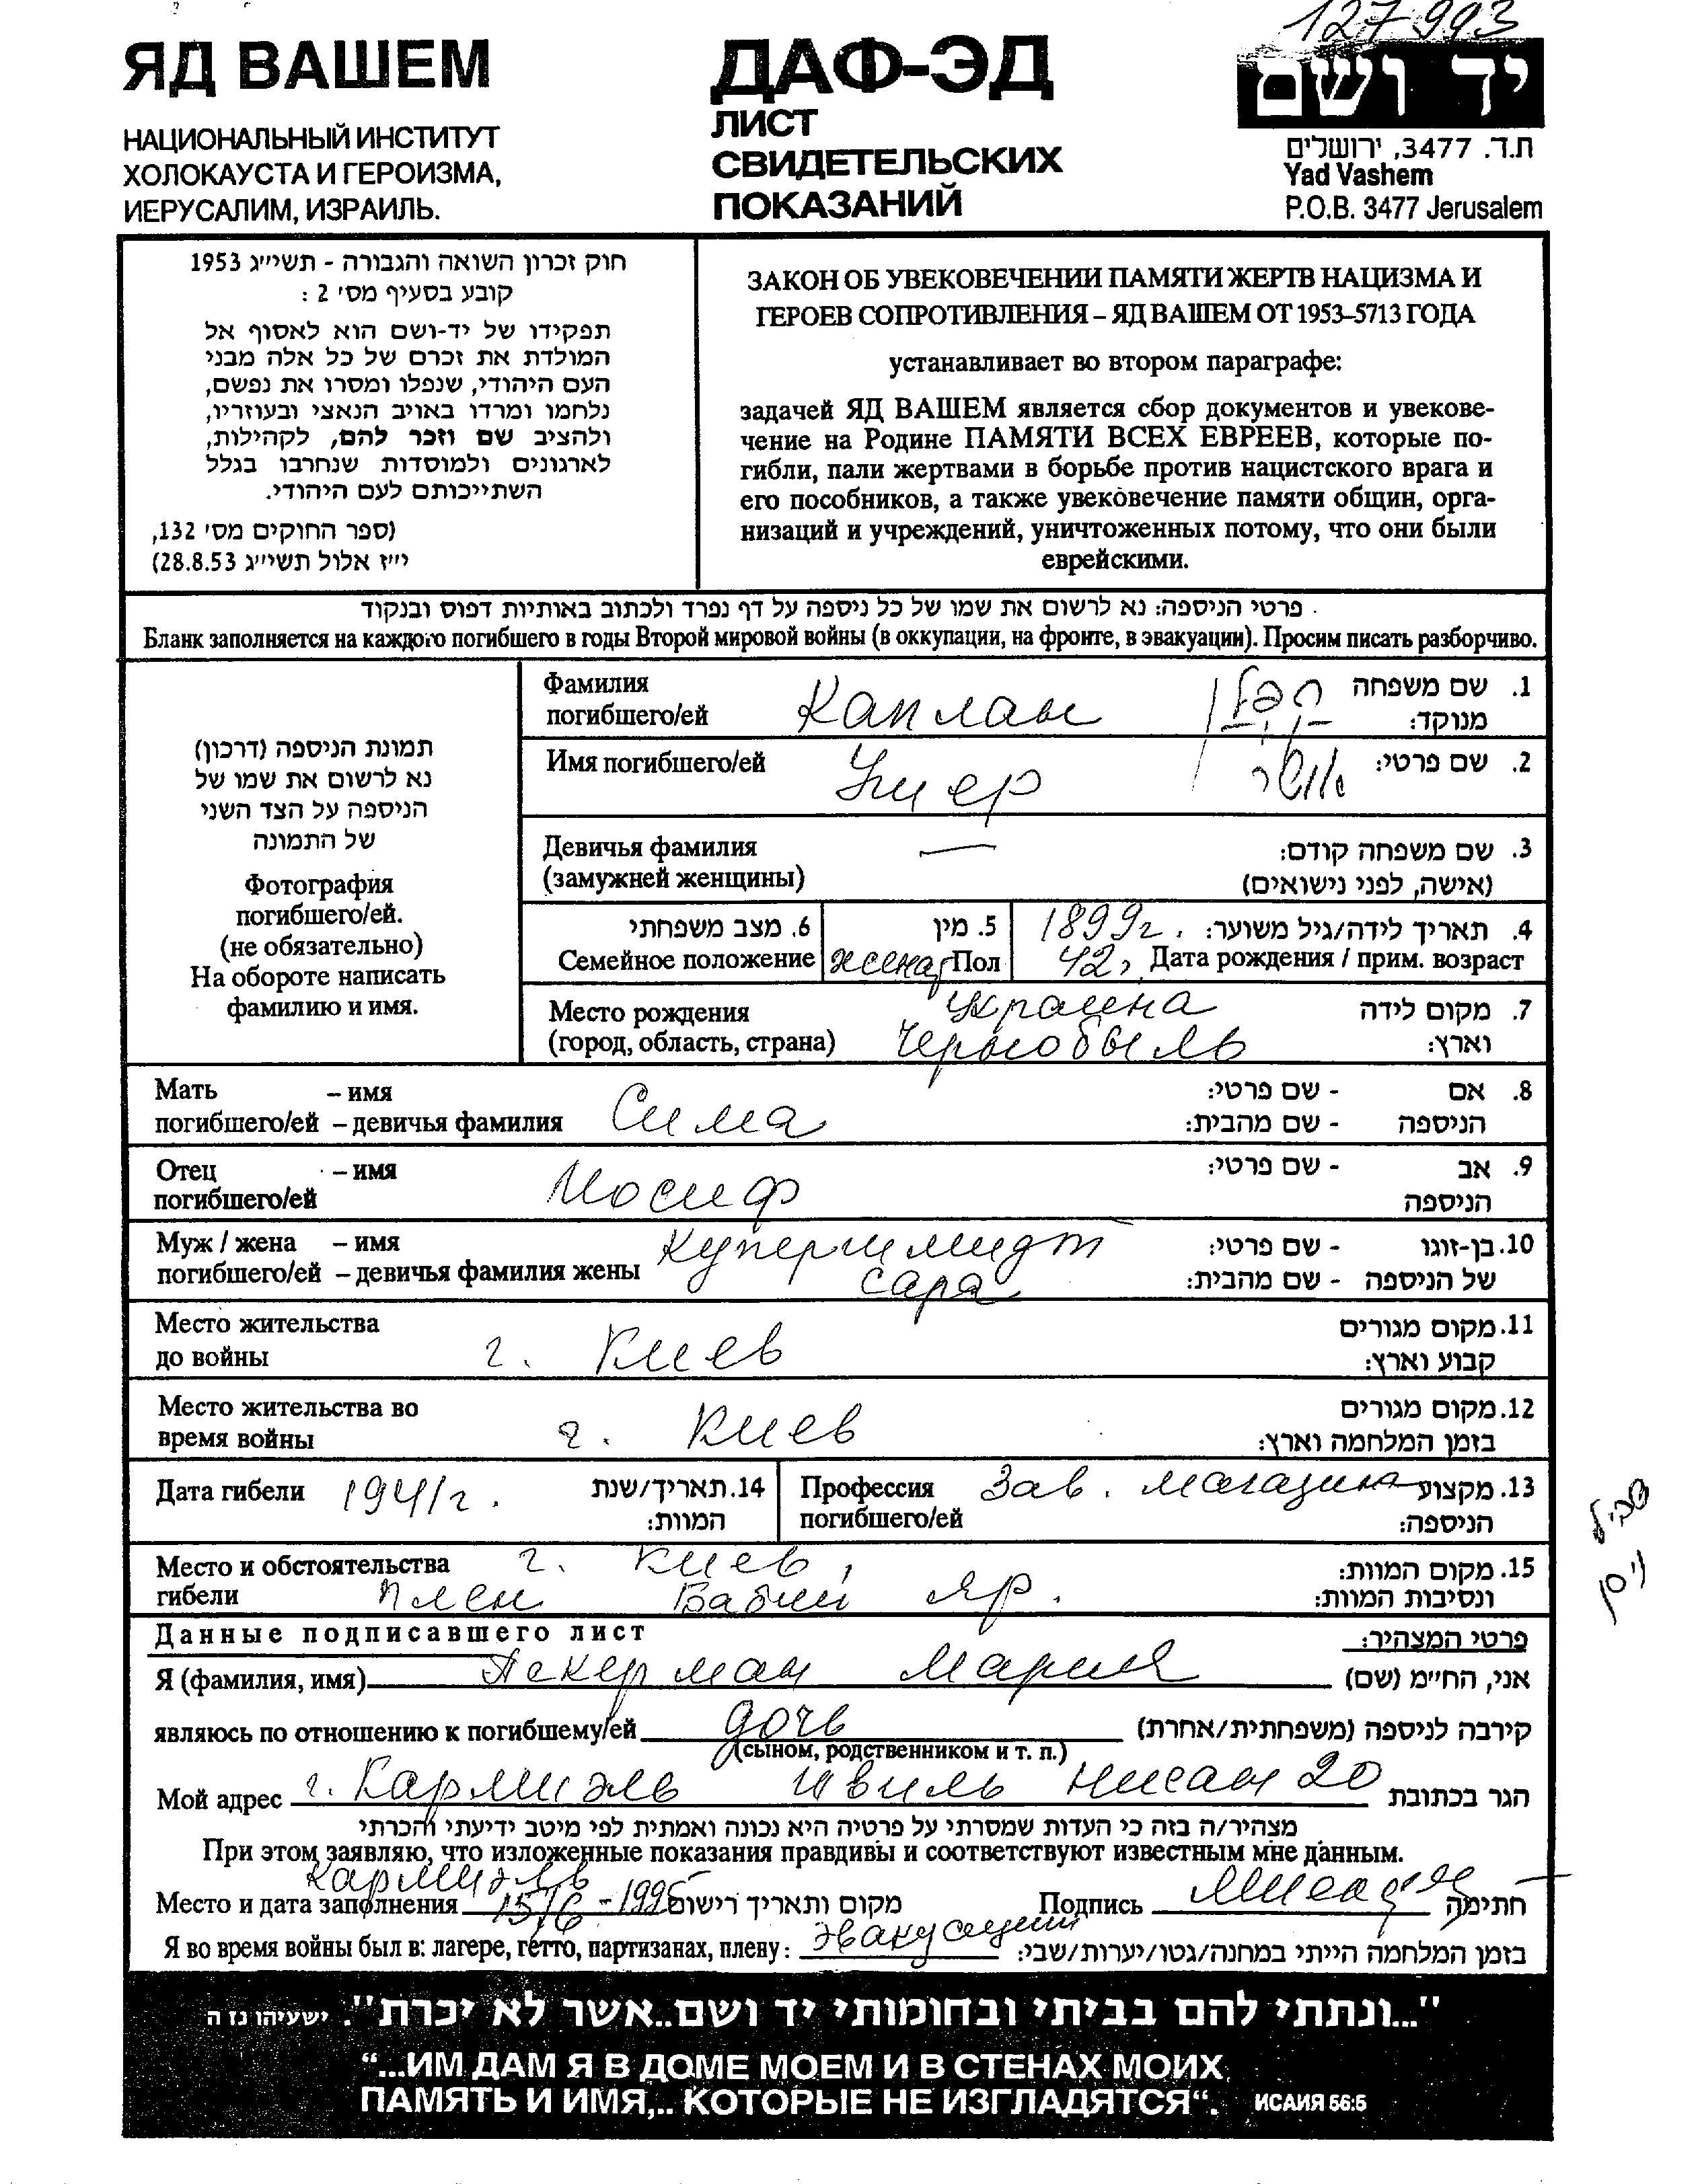 127993
ЯД ВАШЕМ
НАЦИОНАЛЬНЫЙ ИНСТИТУТ
ХОЛОКАУСТА И ГЕРОИЗМА,
ИЕРУСАЛИМ, ИЗРАИЛЬ.
ДАФ-ЭД
ЛИСТ
СВИДЕТЕЛЬСКИХ
ПОКАЗАНИЙ
יד ושם
ת.ד. 3477, ירושלים
Yad Vashem
P.O.B. 3477 Jerusalem
חוק זכרון השואה והגבורה - תשי״ג 1953
קובע בסעיף מס׳ 2 :
תפקידו של יד-ושם הוא לאסוף אל
המולדת את זכרם של כל אלה מבני
העם היהודי, שנפלו ומסרו את נפשם,
נלחמו ומרדו באויב הנאצי ובעוזריו,
ולהציב שם וזכר להם, לקהילות,
לארגונים ולמוסדות שנחרבו בגלל
השתייכותם לעם היהודי.
(ספר החוקים מס׳ 132,
י״ז אלול תשי״ג 28.8.53)
ЗАКОН ОБ УВЕКОВЕЧЕНИИ ПАМЯТИ ЖЕРТВ НАЦИЗМА И
ГЕРОЕВ СОПРОТИВЛЕНИЯ – ЯД ВАШЕМ ОТ 1953–5713 ГОДА
устанавливает во втором параграфе:
задачей ЯД ВАШЕМ является сбор документов и увекове-
чение на Родине ПАМЯТИ ВСЕХ ЕВРЕЕВ, которые по-
гибли, пали жертвами в борьбе против нацистского врага и
его пособников, а также увековечение памяти общин, орга-
низаций и учреждений, уничтоженных потому, что они были
еврейскими.
פרטי הניספה: נא לרשום את שמו של כל ניספה על דף נפרד ולכתוב באותיות דפוס ובנקוד
Бланк заполняется на каждого погибшего в годы Второй мировой войны (в оккупации, на фронте, в эвакуации). Просим писать разборчиво.
תמונת הניספה (דרכון)
נא לרשום את שמו של
הניספה על הצד השני
של התמונה
Фотография
погибшего/ей.
(не обязательно)
На обороте написать
фамилию и имя.
Фамилия Каплан קפלן 1. שם משפחה
погибшего/ей מנוקד:
Имя погибшего/ей Ушер אושר 2. שם פרטי:
Девичья фамилия — 3. שם משפחה קודם:
(замужней женщины) (אישה, לפני נישואים)
6. מצב משפחתי 5. מין 1899г. 4. תאריך לידה/גיל משוער:
Семейное положение женат Пол 42, Дата рождения / прим. возраст
Место рождения Украина 7. מקום לידה
(город, область, страна) Чернобыль וארץ:
Мать – имя 8. אם - שם פרטי:
погибшего/ей – девичья фамилия Сима הניספה - שם מהבית:
Отец – имя 9. אב - שם פרטי:
погибшего/ей Иосиф הניספה
Муж / жена – имя Купершмидт 10. בן-זוגו - שם פרטי:
погибшего/ей – девичья фамилия жены Сара של הניספה - שם מהבית:
Место жительства 11. מקום מגורים
до войны г. Киев קבוע וארץ:
Место жительства во 12. מקום מגורים
время войны г. Киев בזמן המלחמה וארץ:
Дата гибели 1941г. 14. תאריך/שנת
המוות:
Профессия Зав. магазина 13. מקצוע
погибшего/ей הניספה:
Место и обстоятельства г. Киев, 15. מקום המוות:
гибели Плен Бабий яр. ונסיבות המוות:
שביל
ניסן
Данные подписавшего лист פרטי המצהיר:
Я (фамилия, имя) Акерман Мария אני, החי״מ (שם)
являюсь по отношению к погибшему/ей дочь קירבה לניספה (משפחתית/אחרת)
(сыном, родственником и т. п.)
Мой адрес г. Кармиэль Швиль Нисан 20 הגר בכתובת
מצהיר/ה בזה כי העדות שמסרתי על פרטיה היא נכונה ואמתית לפי מיטב ידיעתי והכרתי
При этом заявляю, что изложенные показания правдивы и соответствуют известным мне данным.
Кармиэль
Место и дата заполнения 15/6-1995 מקום ותאריך רישום Подпись חתימה
Я во время войны был в: лагере, гетто, партизанах, плену: эвакуации בזמן המלחמה הייתי במחנה/גטו/יערות/שבי:
"...ונתתי להם בביתי ובחומותי יד ושם..אשר לא יכרת". ישעיהו נז ה
“...ИМ ДАМ Я В ДОМЕ МОЕМ И В СТЕНАХ МОИХ
ПАМЯТЬ И ИМЯ,.. КОТОРЫЕ НЕ ИЗГЛАДЯТСЯ“. ИСАИЯ 56:5